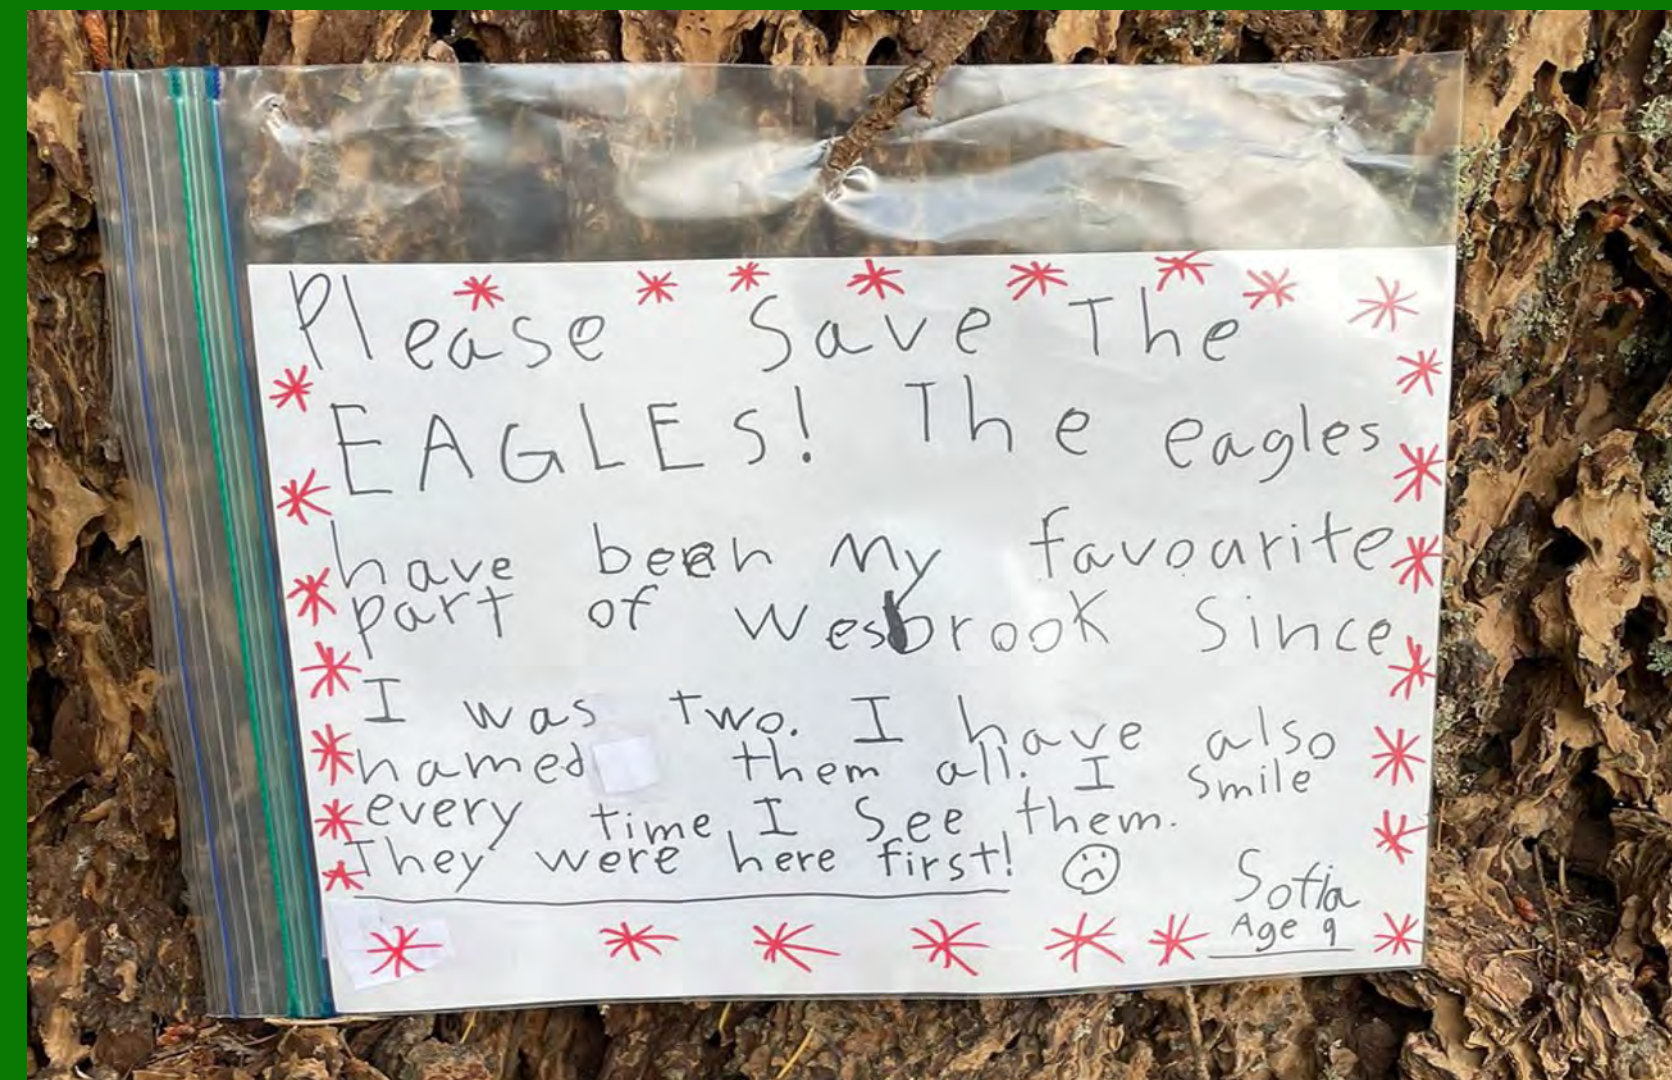 Please Save The
EAGLES! The eagles
have been my favourite
part of Wesbrook Since
I was two. I have also
named them all. I smile
every time I See them.
They were here first!
Sofia
Age 9